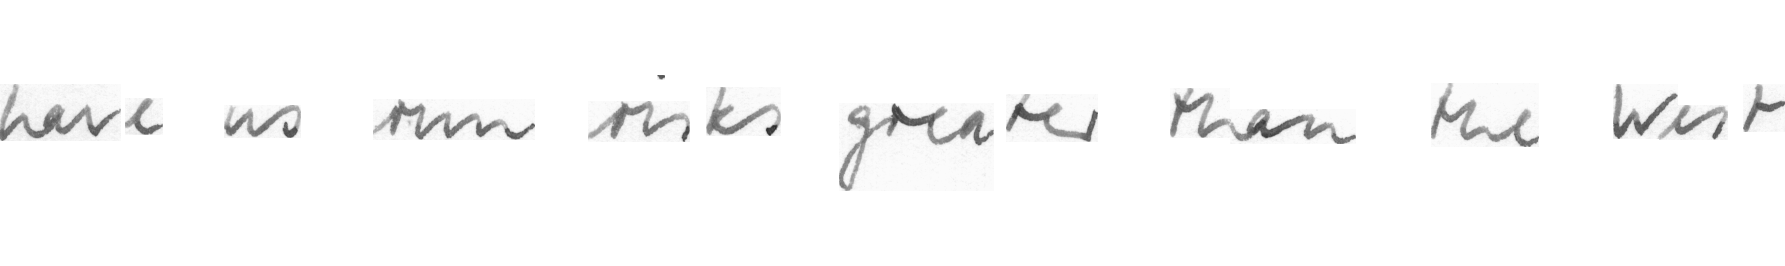 have us run risks greater than the West